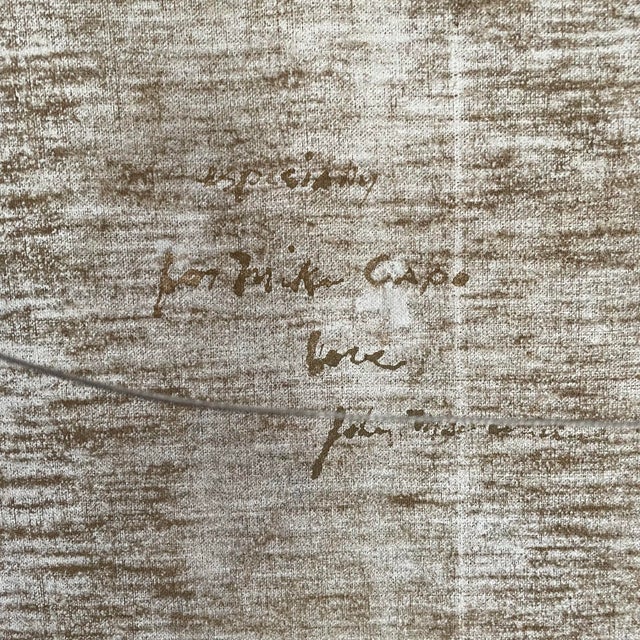 especially
for Mike Capo
love,
John